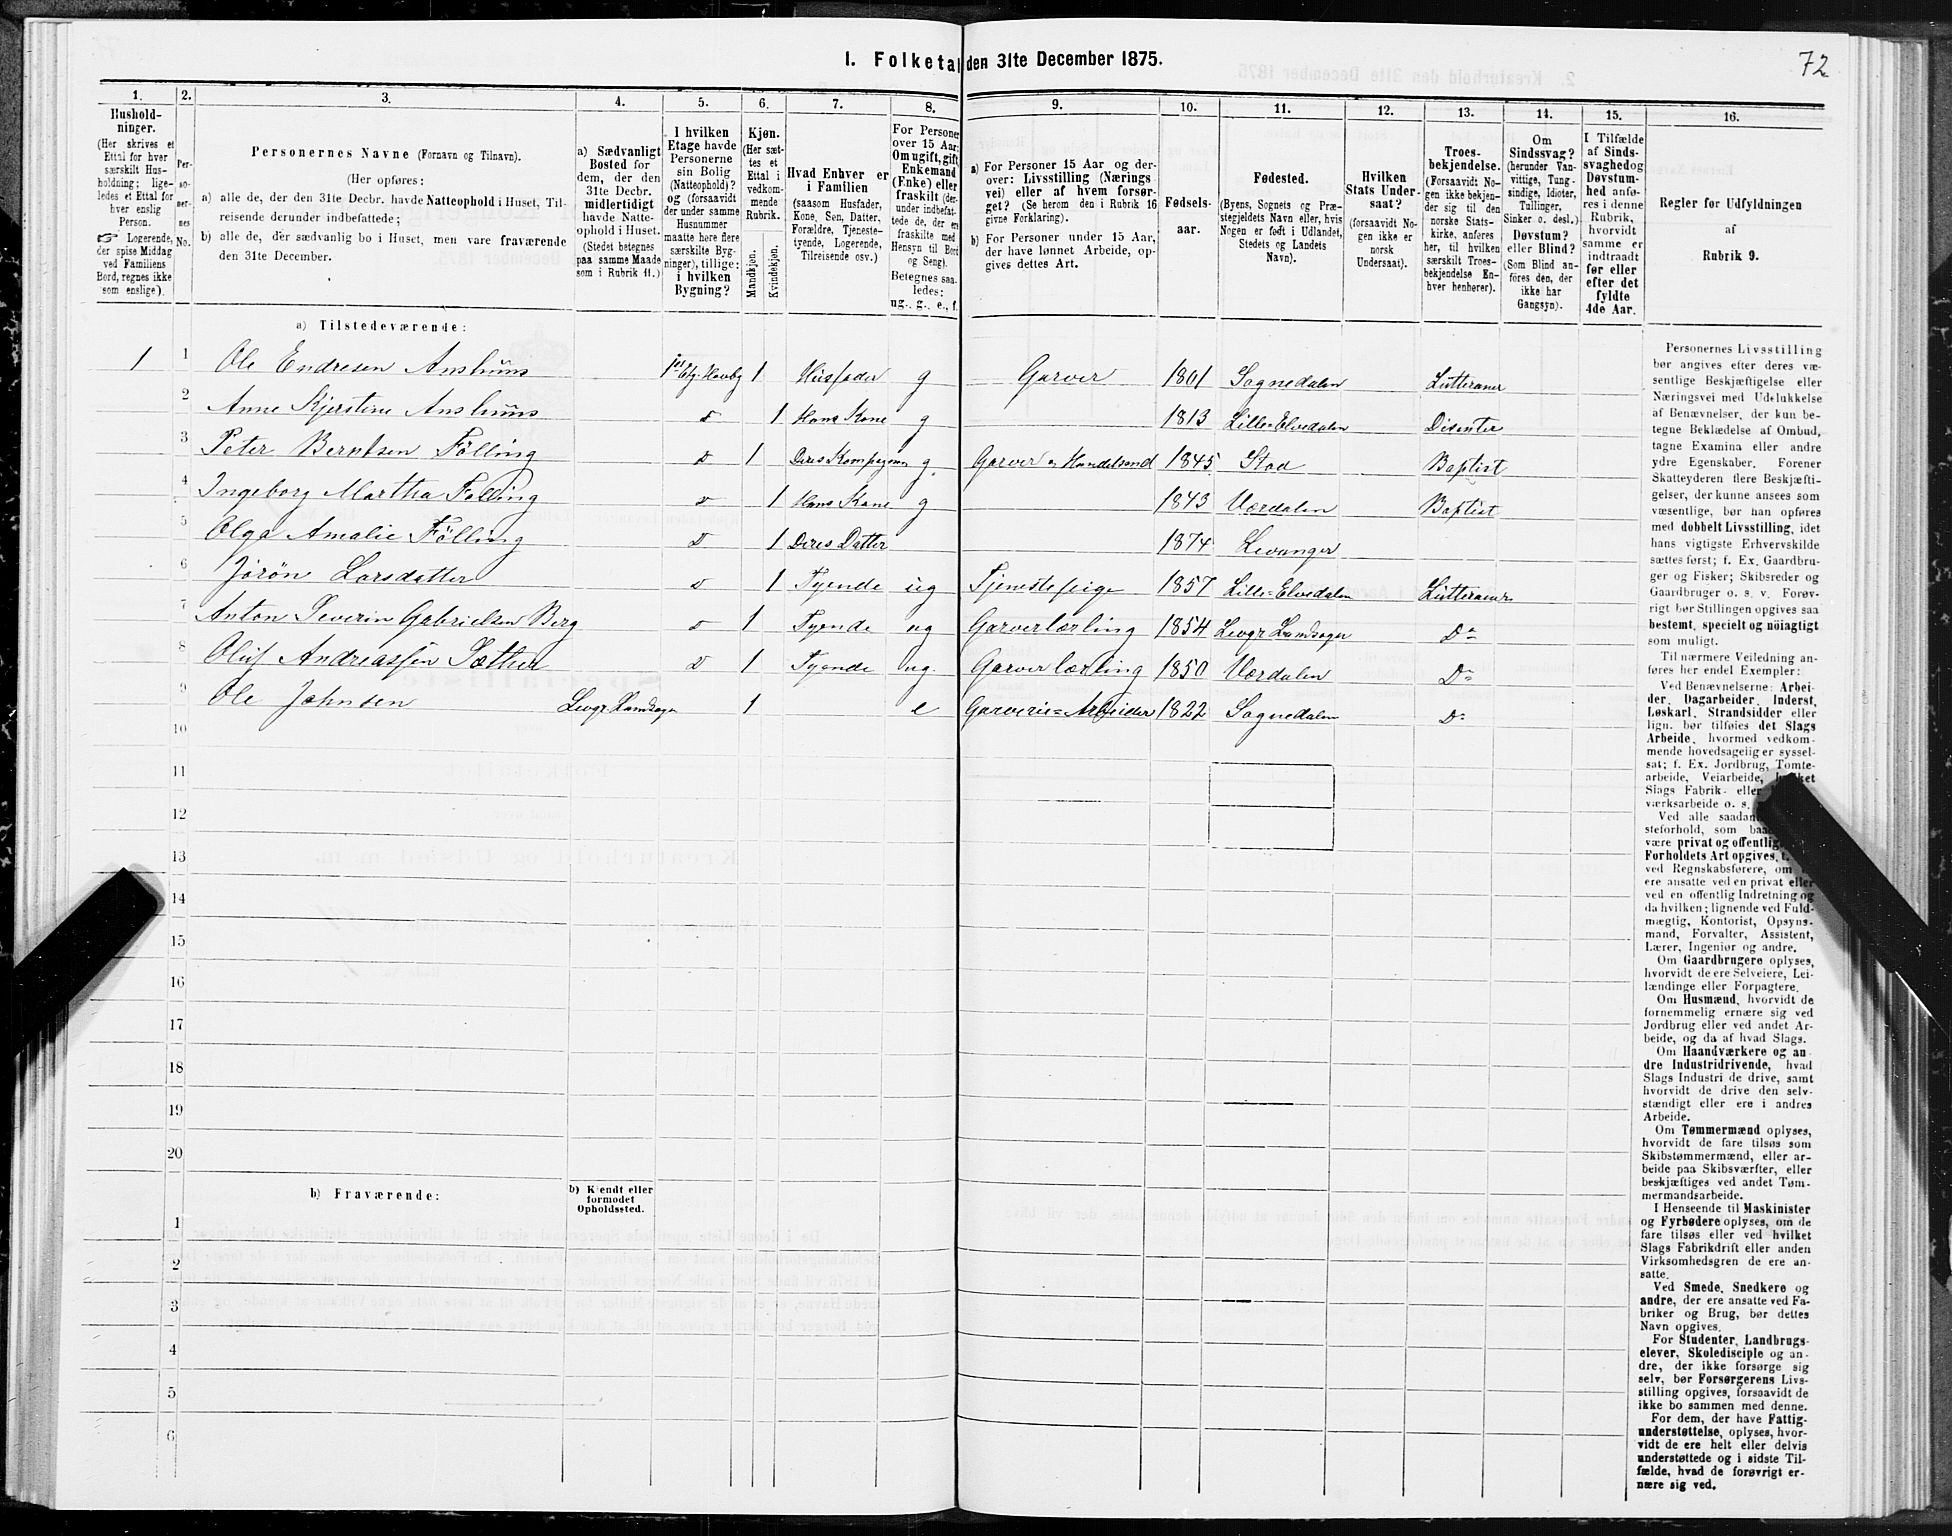 I. Folketal den 31te December 1875.
72
1. 2. 3. 4. 5. 6. 7. 8. 9. 10. 11. 12. 13. 14. 15. 16.
Hushold-
ninger.
(Her skrives et
Ettal for hver
særskilt Hus-
holdning; lige-
ledes et Ettal for
hver enslig
Person.
☞ Logerende,
der spise Middag
ved Familiens
Bord, regnes ikke
som enslige).
Per-
so-
ner-
nes
No.
Personernes Navne (Fornavn og Tilnavn).
(Her opføres:
a) alle de, der den 31te Decbr. havde Natteophold i Huset, Til-
reisende derunder indbefattede;
b) alle de, der sædvanlig bo i Huset, men vare fraværende
den 31te December.
a) Sædvanligt
Bosted for
dem, der den
31te Decbr.
midlertidigt
havde Natte-
ophold i Huset.
(Stedet betegnes
paa samme Maade
som i Rubrik 11.)
I hvilken
Etage havde
Personerne
sin Bolig
(Natteophold)?
og (forsaavidt
der under samme
Husnummer
maatte høre flere
særskilte Byg-
ninger), tillige:
i hvilken
Bygning?
Kjøn.
(Her sæt-
tes et
Ettal i
vedkom-
mende
Rubrik.
Mandkjøn.
Kvindekjøn.
Hvad Enhver er
i Familien
(saasom Husfader,
Kone, Søn, Datter,
Forældre, Tjeneste-
tyende, Logerende,
Tilreisende osv.)
For Personer
over 15 Aar:
Om ugift, gift,
Enkemand
(Enke) eller
fraskilt (der-
under indbefat-
tede de, der ere
fraskilte med
Hensyn til Bord
og Seng).
Betegnes saa-
ledes:
ug., g., e., f.
a) For Personer 15 Aar og der-
over: Livsstilling (Nærings-
vei) eller af hvem forsør-
get? (Se herom den i Rubrik 16
givne Forklaring).
b) For Personer under 15 Aar,
der have lønnet Arbeide, op-
gives dettes Art.
Fødsels-
aar.
Fødested.
(Byens, Sognets og Præ-
stegjeldets Navn eller, hvis
Nogen er født i Udlandet,
Stedets og Landets
Navn).
Hvilken
Stats Under-
saat?
(forsaavidt No-
gen ikke er
norsk
Undersaat).
Troes-
bekjendelse.
(Forsaavidt No-
gen ikke bekjen-
der sig til den
norske Stats-
kirke, anføres
her, til hvilken
særskilt Troes-
bekjendelse En-
hver henhører).
Om
Sindssvag?
(herunder Van-
vittige, Tung-
sindige, Idioter,
Tullinger,
Sinker o. desl.)
Døvstum?
eller Blind?
(Som Blind an-
føres den, der
ikke har
Gangsyn).
I Tilfælde
af Sinds-
svaghed og
Døvstum-
hed anfø-
res i denne
Rubrik,
hvorvidt
samme er
indtraadt
før eller
efter det
fyldte
4de Aar.
Regler for Udfyldningen
af
Rubrik 9.
a) Tilstedeværende:
1 1 Ole Endresen Anshuus 1ste Etg. Hovbg 1 Husfader g Garver 1801 Sognedalen Lutteraner
2 Anne Kjerstine Anshuus D 1 Hans Kone g 1813 Lille=Elvedalen Disenter
3 Peter Berntsen Følling D 1 Deres Kompagnon g. Garver og Handelsmd 1845 Stod Baptist
4 Ingeborg Martha Følling D 1 Hans Kone g 1843 Værdalen Baptist
5 Olga Amalie Følling D 1 Deres Datter 1874 Levanger
6 Jørøn Larsdatter D 1 Tyende ug Tjenestepige 1857 Lille=Elvedalen Lutteraner
7 Anton Severin Gabrielsen Berg D 1 Tyende ug Garverlærling 1854 Levgr Landsogn Do
8 Oluf Andreassen Sæther D 1 Tyende ug. Garverlærling 1850 Værdalen Do
9 Ole Johnsen Levgr Landsogn 1 e Garverie=Arbeider 1822 Sognedalen Do
10
11
12
13
14
15
16
17
18
19
20
b) Fraværende:
b) Kjendt eller
formodet
Opholdssted.
1
2
3
4
5
6
Personernes Livsstilling
bør angives efter deres væ-
sentlige Beskjæftigelse eller
Næringsvei med Udelukkelse
af Benævnelser, der kun be-
tegne Beklædelse af Ombud,
tagne Examina eller andre
ydre Egenskaber. Forener
Skatteyderen flere Beskjæfti-
gelser, der kunne ansees som
væsentlige, bør han opføres
med dobbelt Livsstilling, idet
hans vigtigste Erhvervskilde
sættes først; f. Ex. Gaardbru-
ger og Fisker; Skibsreder og
Gaardbruger o. s. v. Forøv-
rigt bør Stillingen opgives saa
bestemt, specielt og nöiagtigt
som muligt.
Til nærmere Veiledning an-
føres her endel Exempler:
Ved Benævnelserne: Arbei-
der, Dagarbeider, Inderst,
Løskarl, Strandsidder eller
lign. bør tilføies det Slags
Arbeide, hvormed vedkom-
mende hovedsagelig er syssel-
sat; f. Ex. Jordbrug, Tomte-
arbeide, Veiarbeide,
Slags Fabrik- eller
værksarbeide o. s.
Ved alle saadan
steforhold, som
være privat og offentlig
Forholdets Art opgives,
ved Regnskabsførere, om
ere ansatte ved en privat eller
ved en offentlig Indretning og
da hvilken; lignende ved Fuld-
mægtig, Kontorist, Opsyns-
mand, Forvalter, Assistent,
Lærer, Ingeniør og andre.
Om Gaardbrugere oplyses,
hvorvidt de ere Selveiere, Lei-
lændinge eller Forpagtere.
Om Husmænd, hvorvidt de
fornemmelig ernære sig ved
Jordbrug eller ved andet Ar-
beide, og da af hvad Slags.
Om Haandværkere og an
dre Industridrivende, hvad
Slags Industri de drive, samt
hvorvidt de drive den selv-
stændigt eller ere i andres
Arbeide.
Om Tømmermænd oplyses,
hvorvidt de fare tilsøs som
Skibstømmermænd, eller ar-
beide paa Skibsværfter, eller
beskjæftiges ved andet Tøm-
mermandsarbeide.
I Henseende til Maskinister
og Fyrbødere oplyses, om de
fare tilsøs eller ved hvilket
Slags Fabrikdrift eller anden
Virksomhedsgren de ere an-
satte.
Ved Smede, Snedkere og
andre, der ere ansatte ved Fa-
briker og Brug, bør dettes
Navn opgives.
For Studenter, Landbrugs-
elever, Skoledisciple og an-
dre, der ikke forsørge sig
selv, bør Forsørgerens Livs-
stilling opgives, forsaavidt de
ikke bo sammen med denne.
For dem, der have Fattig-
understøttelse, oplyses, hvor-
vidt de ere helt eller delvis
understøttede og i sidste Til-
fælde, hvad de forøvrigt er-
nære sig ved.